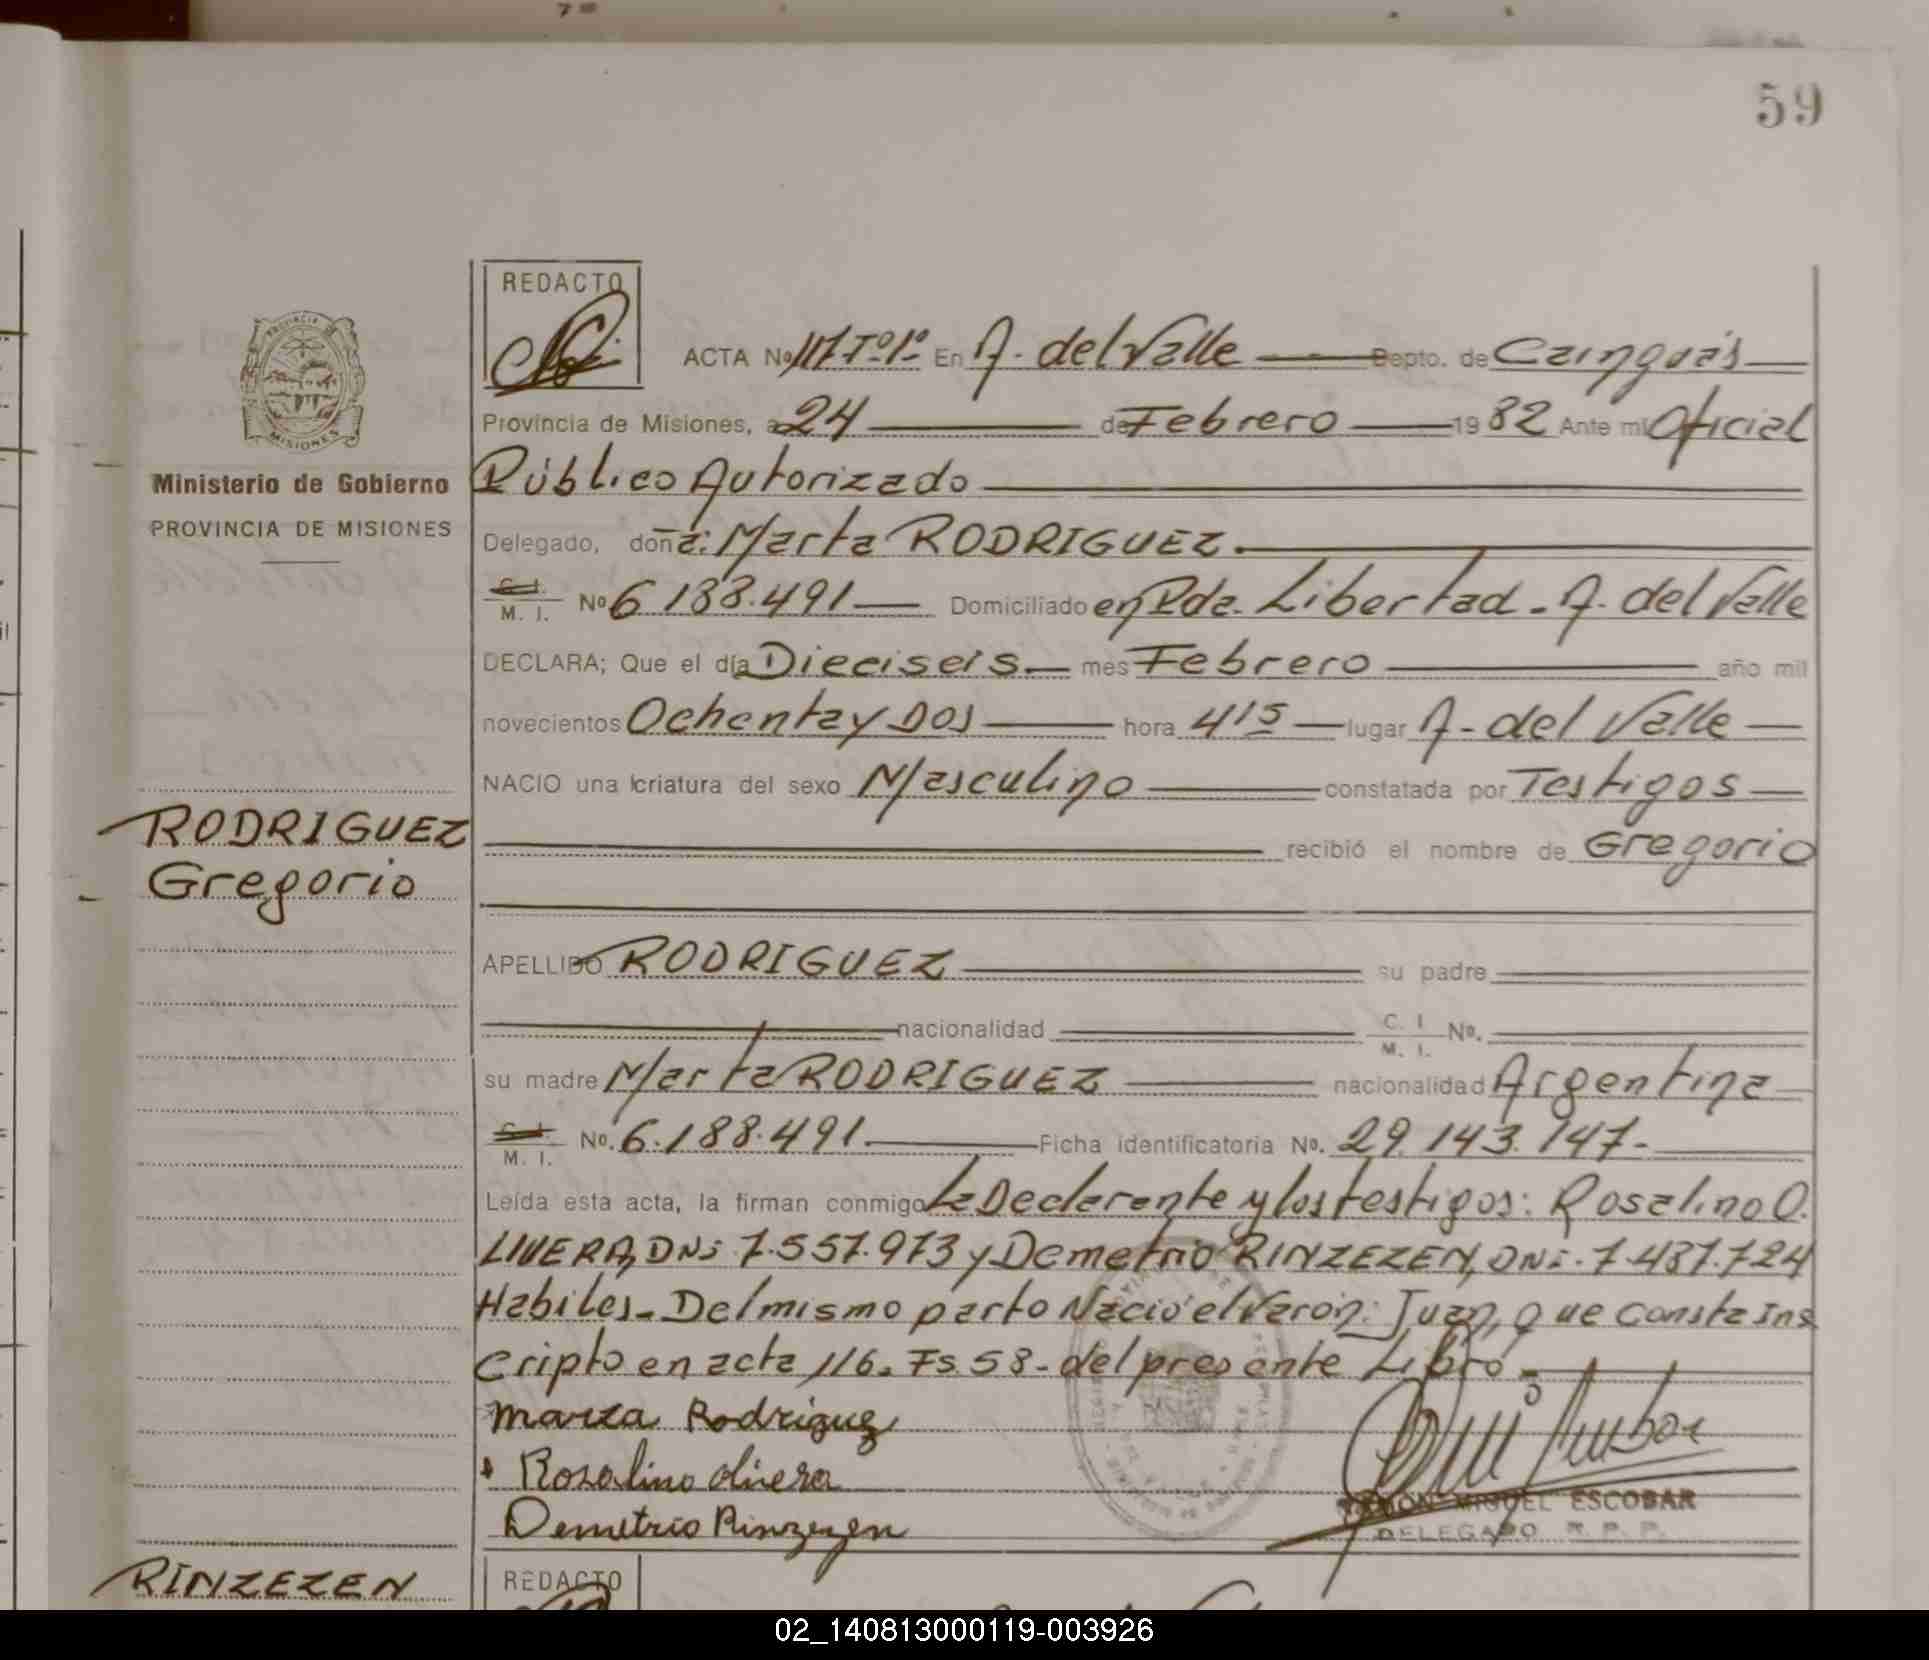 59
REDACTO
ACTA No 117 Tº1º En A. del Valle Depto. de Cainguás
Provincia de Misiones, a 24 de Febrero 1982 Ante mi Oficial
Público Autorizado
PROVINCIA DE MISIONES
Ministerio de Gobierno
PROVINCIA DE MISIONES
Delegado, doña: Marta RODRIGUEZ.
C. I. M. I. No 6.188.491 Domiciliado en Pda. Libertad - A. del Valle
DECLARA; Que el día Dieciseis mes Febrero año mil
novecientos Ochenta y Dos hora 4 15 lugar A. del Valle
NACIO una criatura del sexo Masculino constatada por Testigos
recibió el nombre de Gregorio
RODRIGUEZ
Gregorio
APELLIDO RODRIGUEZ su padre
nacionalidad C. I. M. I. No.
su madre Marta RODRIGUEZ nacionalidad Argentina
C. I. M. I. No. 6.188.491 Ficha identificatoria No. 29.143.147-
Leída esta acta, la firman conmigo La Declarante y los testigos: Rosalino O.
LIVERA, DNi 7.557.973 y Demetrio RINZEZEN, DNi. 7.487.724
Habiles - Del mismo parto Nació el Varón: Juan, que consta Ins
cripto en acta 116. Fs. 58 - del presente Libro.-
Marta Rodriguez
Rosalino olivera
Demetrio Rinzezen
RAMON MIGUEL ESCOBAR
DELEGADO R. P. P.
RINZEZEN
REDACTO
02_140813000119-003926